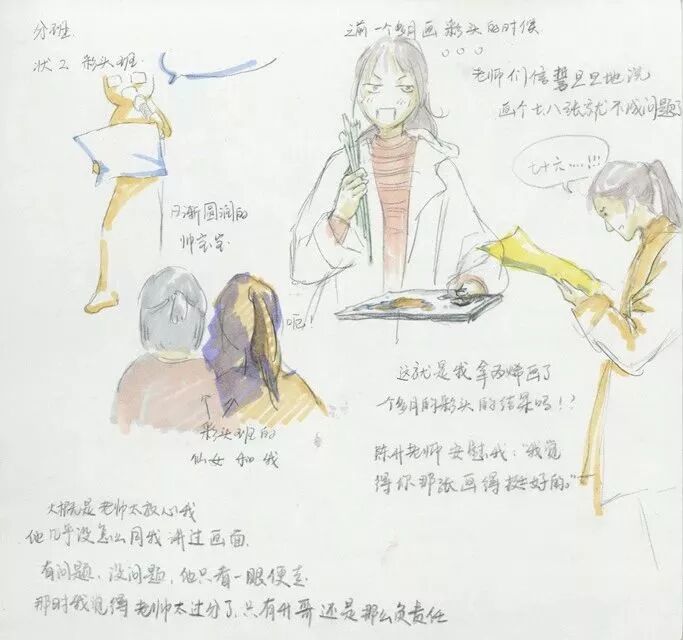 分班.
状元 彩头班.
日渐圆润的
帅宝宝
呃!!
彩头班的
仙女 和 我
之前一个多月画彩头的时候
老师们信誓旦旦地说
画个七八张就不成问题了
七十六……!!!
这就是我拿命烯画了
个多月的彩头的结果吗!?
陈升老师安慰我:“我觉
得你那张画得挺好的。”
大概是老师太放心我
他几乎没怎么同我讲过画面.
有问题、没问题,他只看一眼便走.
那时我觉得老师太过分了.只有升哥还是那么负责任